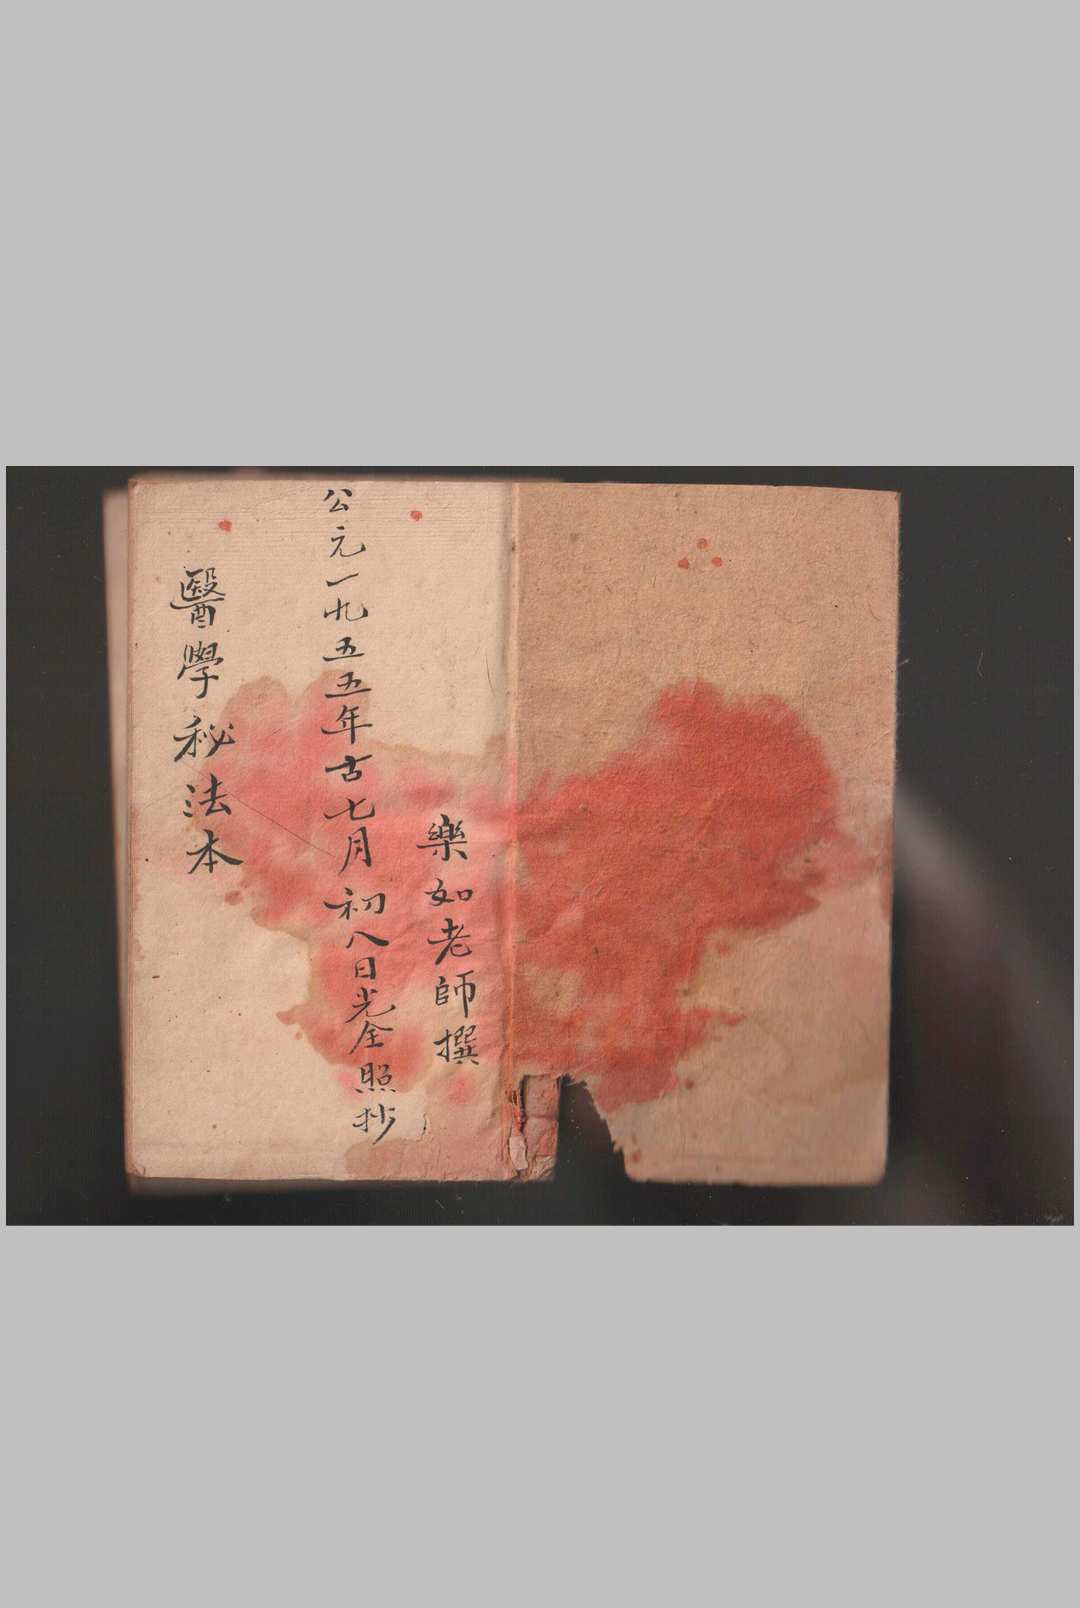 樂如老師撰
公元一九五五年古七月初八日光全照抄
醫學秘法本